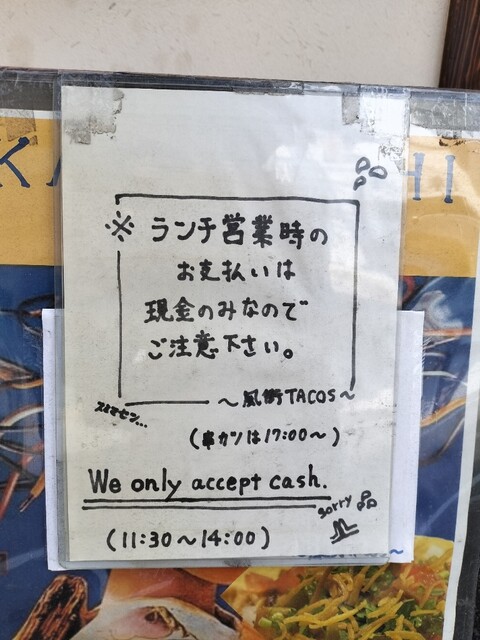 ※ランチ営業時の
お支払いは
現金のみなので
ご注意下さい。
～風街TACOS～
スミマセン...
(串カツは17:00～)
We only accept cash.
sorry
(11:30～14:00)